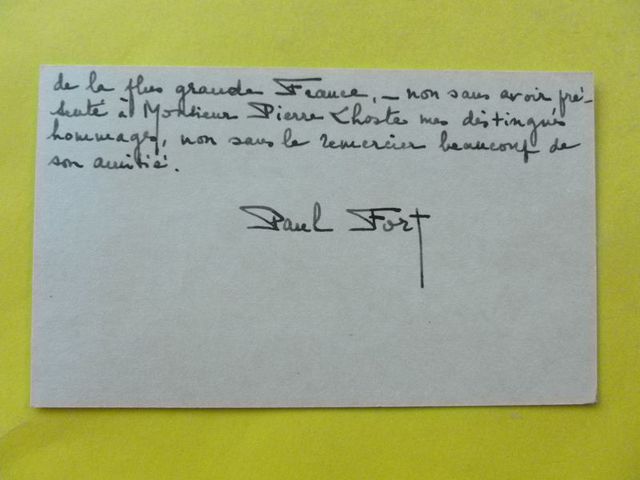 de la plus grande France, – non sans avoir pré-
senté à Monsieur Pierre Lhoste mes distingués
hommages, non sans le remercier beaucoup de
son amitié.
Paul Fort